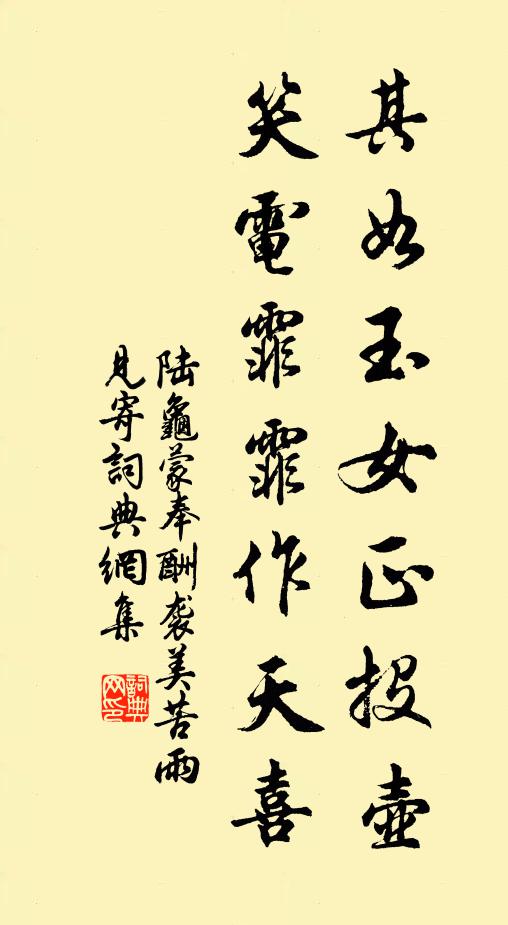 其如玉女正投壺
笑電霏霏作天喜
陆龜蒙奉酬袭美苦雨
見寄詞典網集
詞典网印